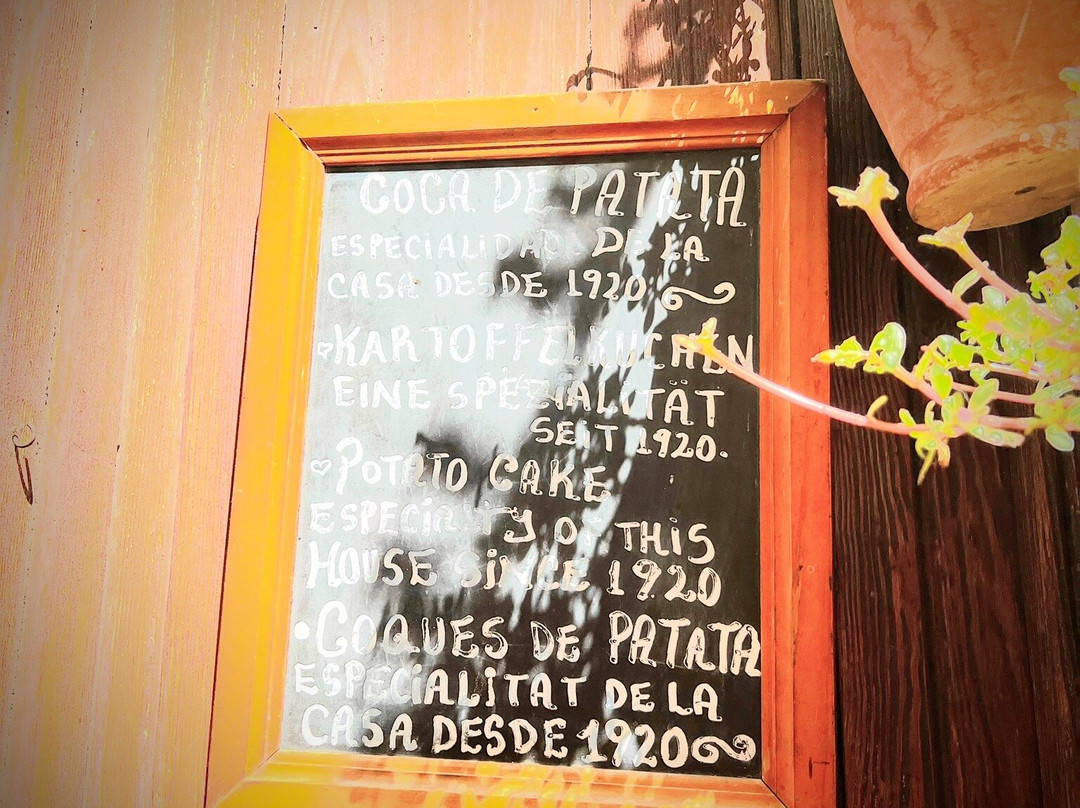 COCA DE PATATA
ESPECIALIDAD DE LA
CASA DESDE 1920
KARTOFFELKUCHEN
EINE SPEZIALITÄT
SEIT 1920.
POTATO CAKE
ESPECIALITY OF THIS
HOUSE SINCE 1920
COQUES DE PATATA
ESPECIALITAT DE LA
CASA DESDE 1920